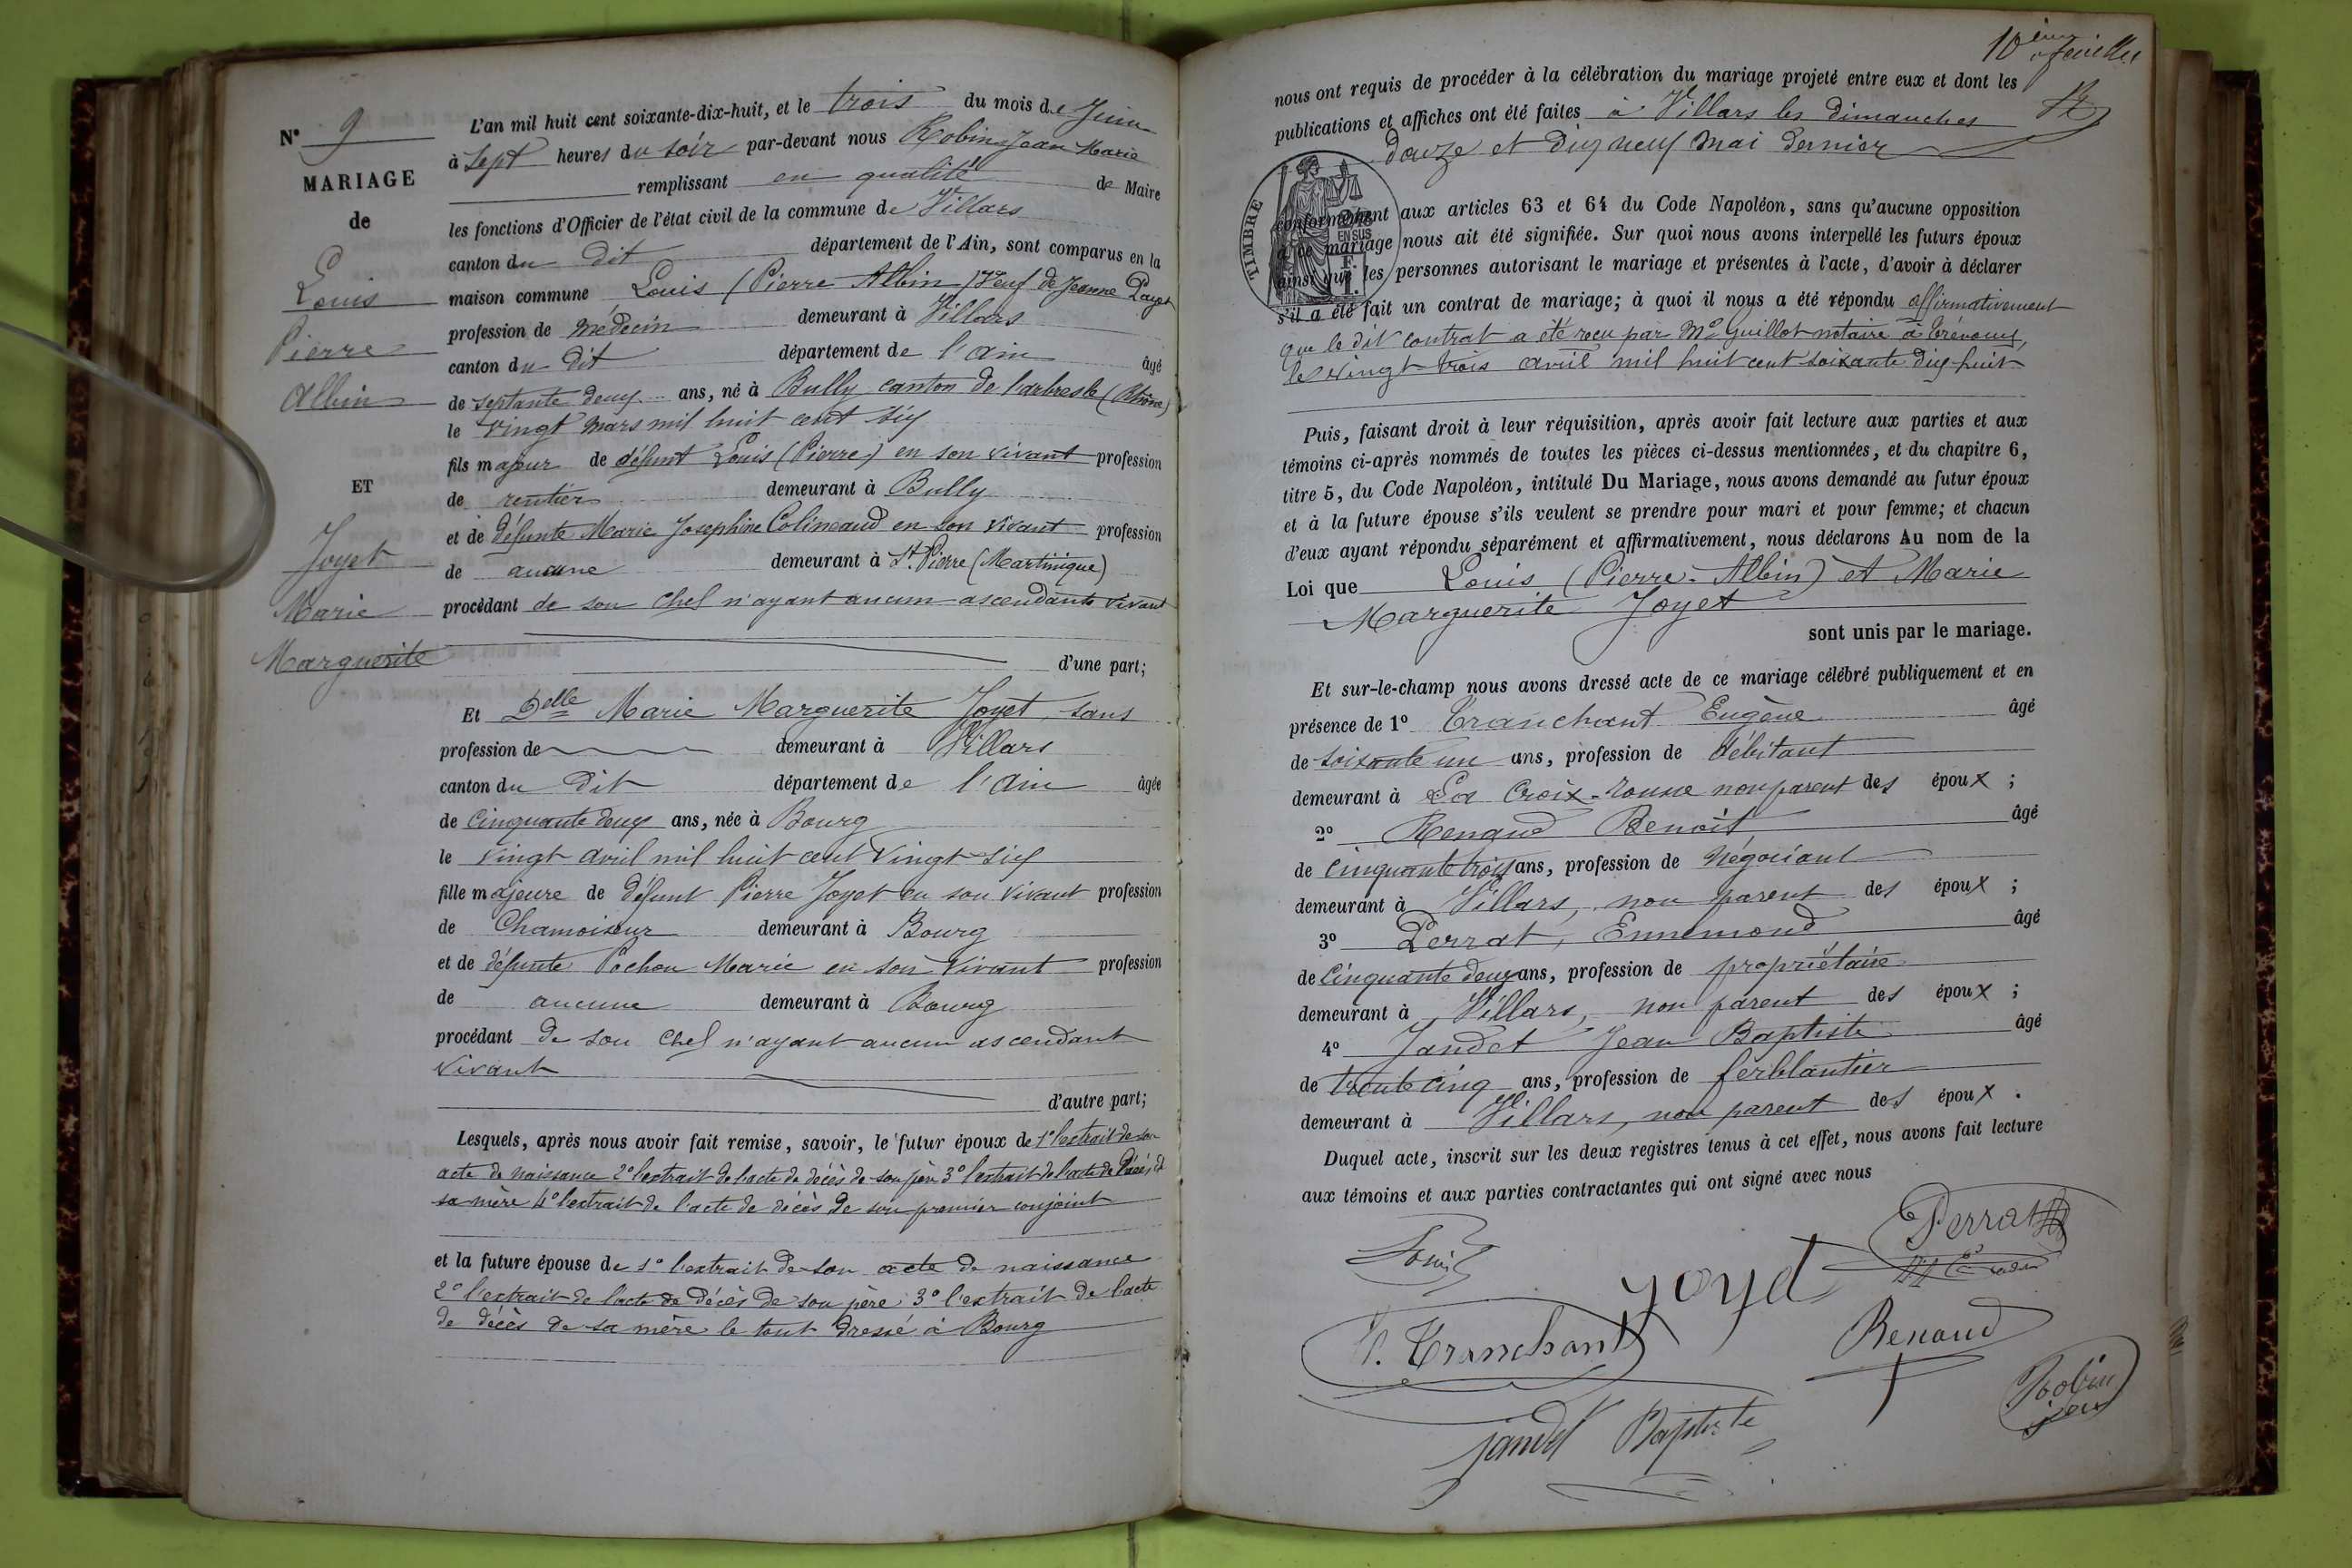 N° 9
MARIAGE
de
Louis
Pierre
Albin
ET
Joyet
Marie
Marguerite
L'an mil huit cent soixante-dix-huit, et le trois du mois de Juin
à sept heures du soir par-devant nous Robin Jean Marie
remplissant en qualité de Maire
les fonctions d'Officier de l'état civil de la commune de Villars
canton du dit département de l'Ain, sont comparus en la
maison commune Louis (Pierre Albin) veuf de Jeanne Payet
profession de médecin demeurant à Villars
canton du dit département de l'ain âgé
de septante deux ans, né à Bully canton de l'arbresle (Rhône)
le vingt mars mil huit cent six
fils majeur de défunt Louis (Pierre) en son vivant profession
de rentier demeurant à Bully
et de défunte Marie Josephine Colineaud en son vivant profession
de aucune demeurant à St. Pierre (Martinique)
procédant de son chef n'ayant aucun ascendants vivant
d'une part;
Et Delle Marie Marguerite Joyet, sans
profession de demeurant à Villars
canton du dit département de l'ain âgée
de cinquante deux ans, née à Bourg
le vingt avril mil huit cent vingt six
fille majeure de défunt Pierre Joyet en son vivant profession
de Chamoiseur demeurant à Bourg
et de défunte Pochon Marie en son vivant profession
de aucune demeurant à Bourg
procédant de son chef n'ayant aucun ascendant
vivant
d'autre part;
Lesquels, après nous avoir fait remise, savoir, le futur époux de 1° l'extrait de son
acte de naissance 2° l'extrait de l'acte de décès de son père 3° l'extrait de l'acte de décès de
sa mère 4° l'extrait de l'acte de décès de son premier conjoint
et la future épouse de 1° l'extrait de son acte de naissance
2° l'extrait de l'acte de décès de son père 3° l'extrait de l'acte
de décès de sa mère le tout dressé à Bourg
10ième feuillet
nous ont requis de procéder à la célébration du mariage projeté entre eux et dont les
publications et affiches ont été faites à Villars les dimanches
douze et dix neuf mai dernier
TIMBRE
EN SUS
conformément aux articles 63 et 64 du Code Napoléon, sans qu'aucune opposition
à ce mariage nous ait été signifiée. Sur quoi nous avons interpellé les futurs époux
ainsi que les personnes autorisant le mariage et présentes à l'acte, d'avoir à déclarer
s'il a été fait un contrat de mariage; à quoi il nous a été répondu affirmativement
que le dit contrat a été reçu par Me Guillot notaire à Trévoux,
le vingt trois avril mil huit cent soixante dix huit
Puis, faisant droit à leur réquisition, après avoir fait lecture aux parties et aux
témoins ci-après nommés de toutes les pièces ci-dessus mentionnées, et du chapitre 6,
titre 5, du Code Napoléon, intitulé Du Mariage, nous avons demandé au futur époux
et à la future épouse s'ils veulent se prendre pour mari et pour femme; et chacun
d'eux ayant répondu séparément et affirmativement, nous déclarons Au nom de la
Loi que Louis (Pierre-Albin) et Marie
Marguerite Joyet
sont unis par le mariage.
Et sur-le-champ nous avons dressé acte de ce mariage célébré publiquement et en
présence de 1° Tranchant Eugène âgé
de soixante un ans, profession de débitant
demeurant à La Croix-rousse non parent des époux ;
2° Renaud Benoît âgé
de cinquante trois ans, profession de négociant
demeurant à Villars, non parent des époux ;
3° Perrat, Ennemond âgé
de cinquante deux ans, profession de propriétaire
demeurant à Villars, non parent des époux ;
4° Jandet Jean Baptiste âgé
de trente cinq ans, profession de ferblantier
demeurant à Villars, non parent des époux .
Duquel acte, inscrit sur les deux registres tenus à cet effet, nous avons fait lecture
aux témoins et aux parties contractantes qui ont signé avec nous
Louis
Perrat
Joyet
Tranchant
Renaud
Robin
jean
jandet Baptiste